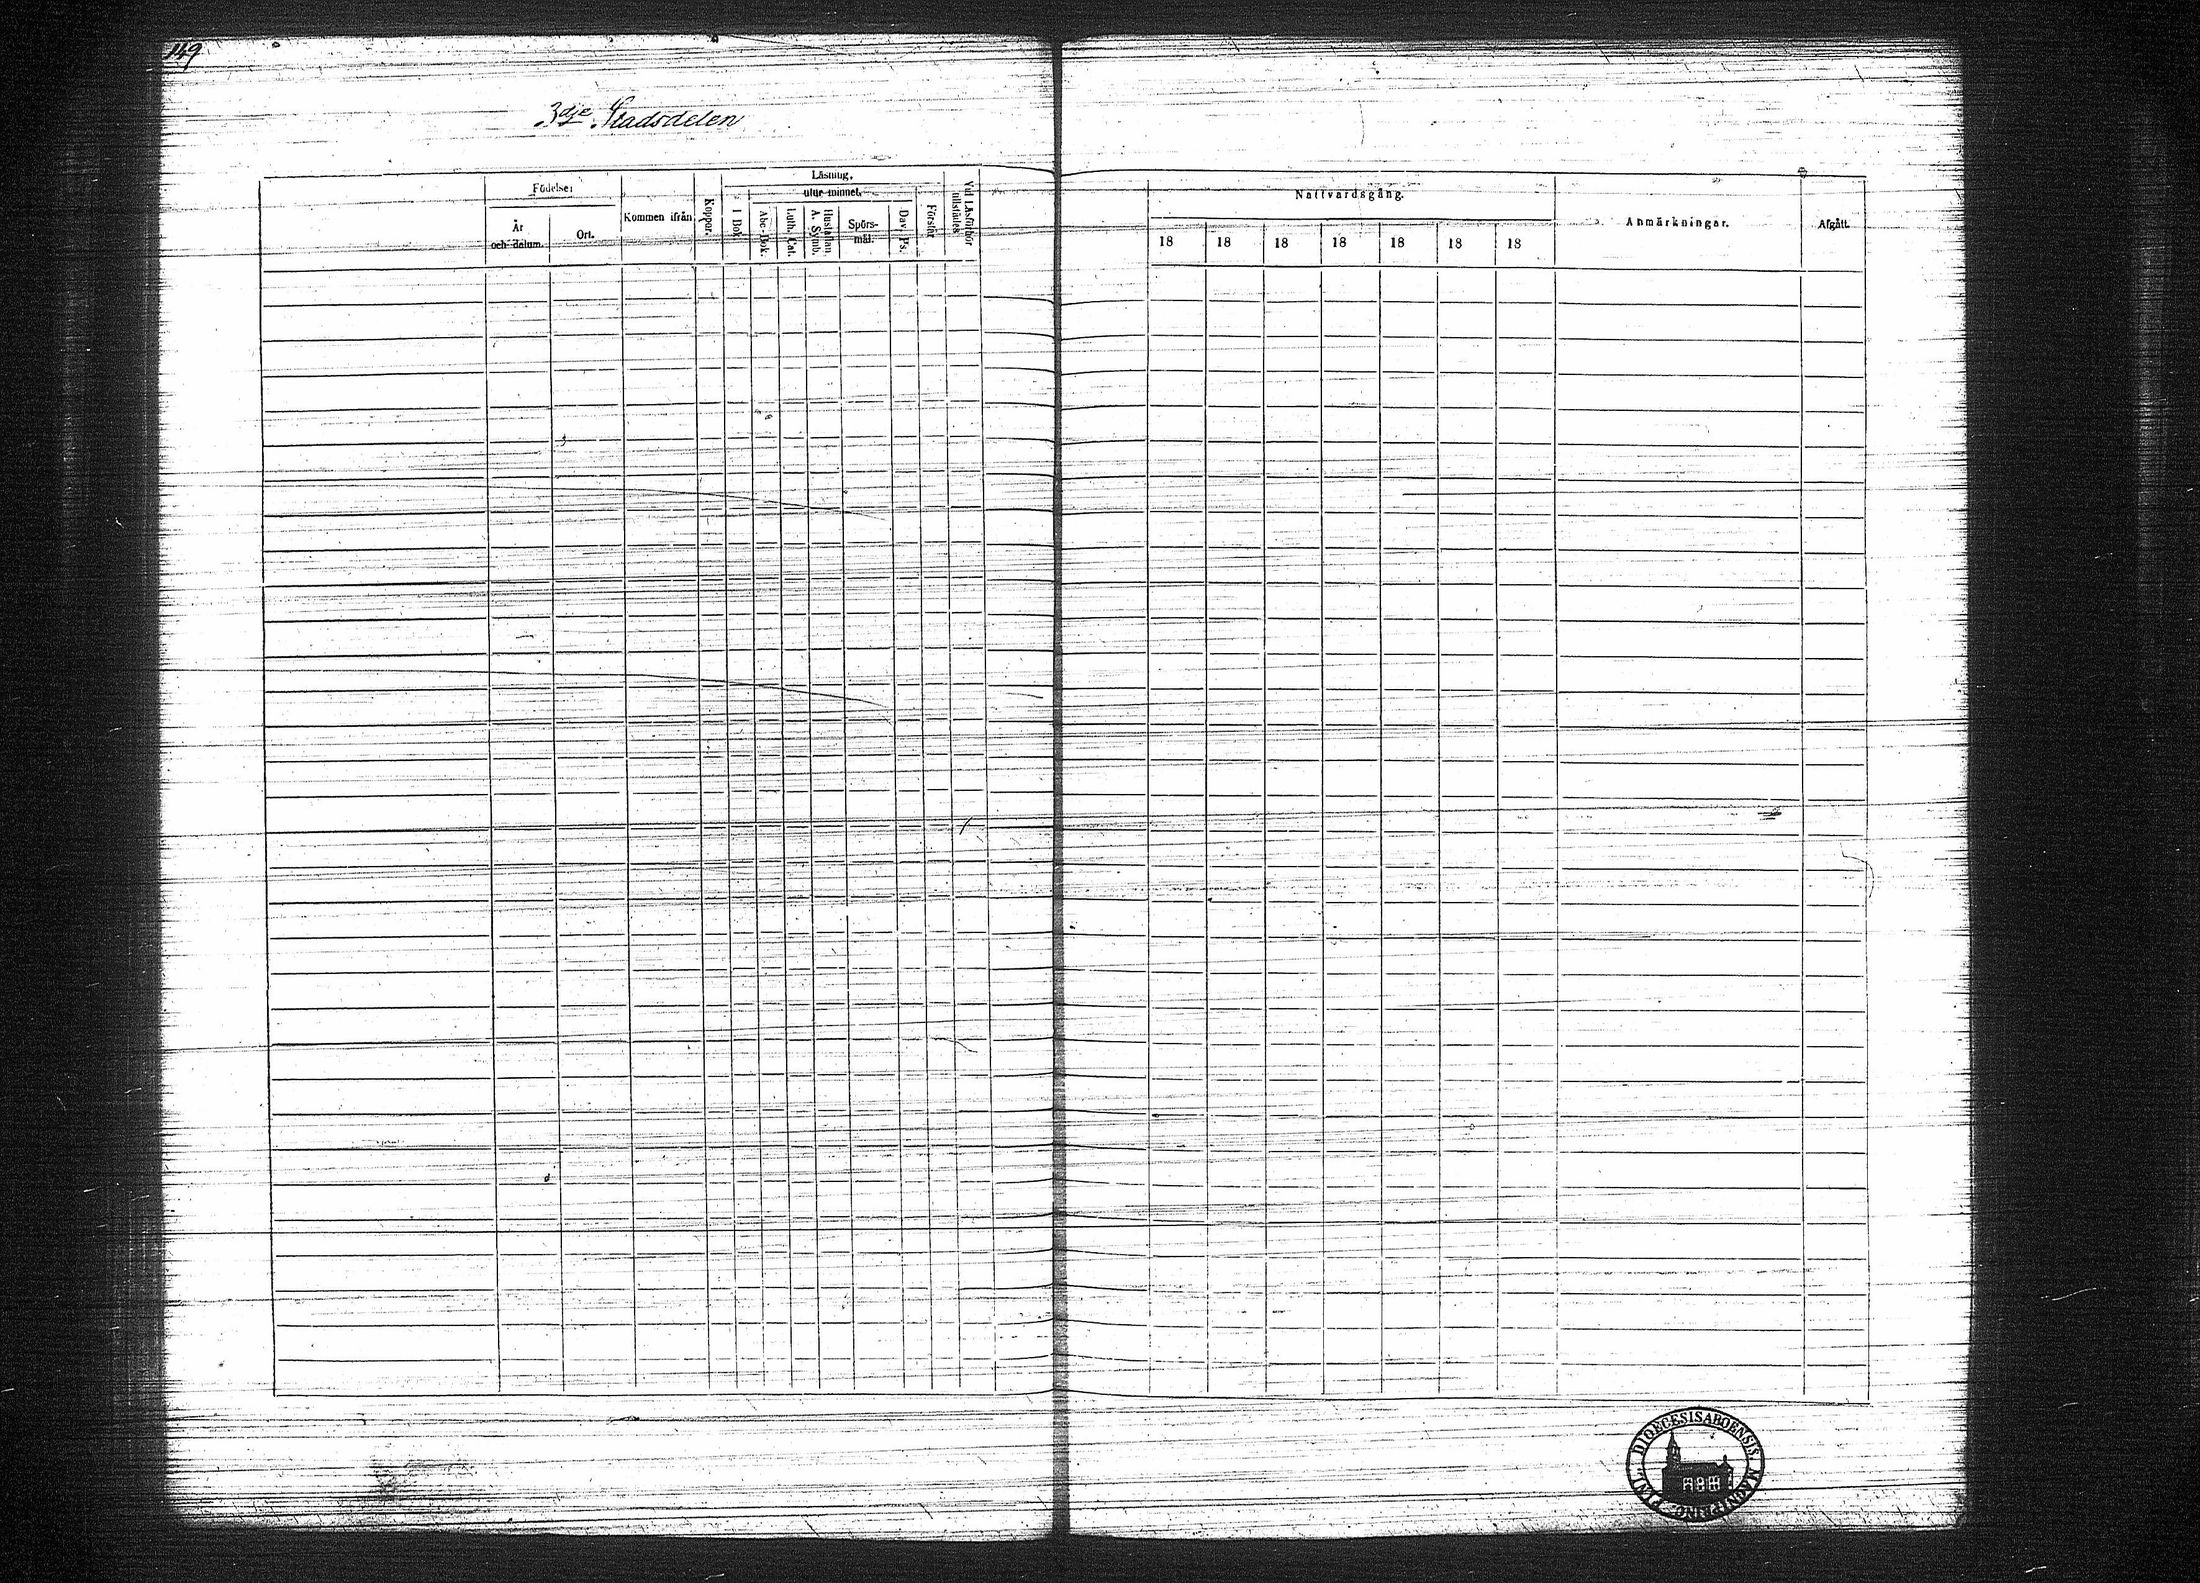 149
3dje Stadsdelen
Födelse:
År
och datum.
Ort.
Kommen ifrån
Koppor.
Läsning,
utur minnet.
I Bok
Abc-Bok.
Luth. Cat.
Hustaflan
A. Symb.
Spörs-
mål.
Dav. Ps.
Förstår
Vid Läsförhör
tillstädes
Nattvardsgång.
18 18 18 18 18 18 18
Anmärkningar.
Afgått.
DIOECESIS ABOENSIS